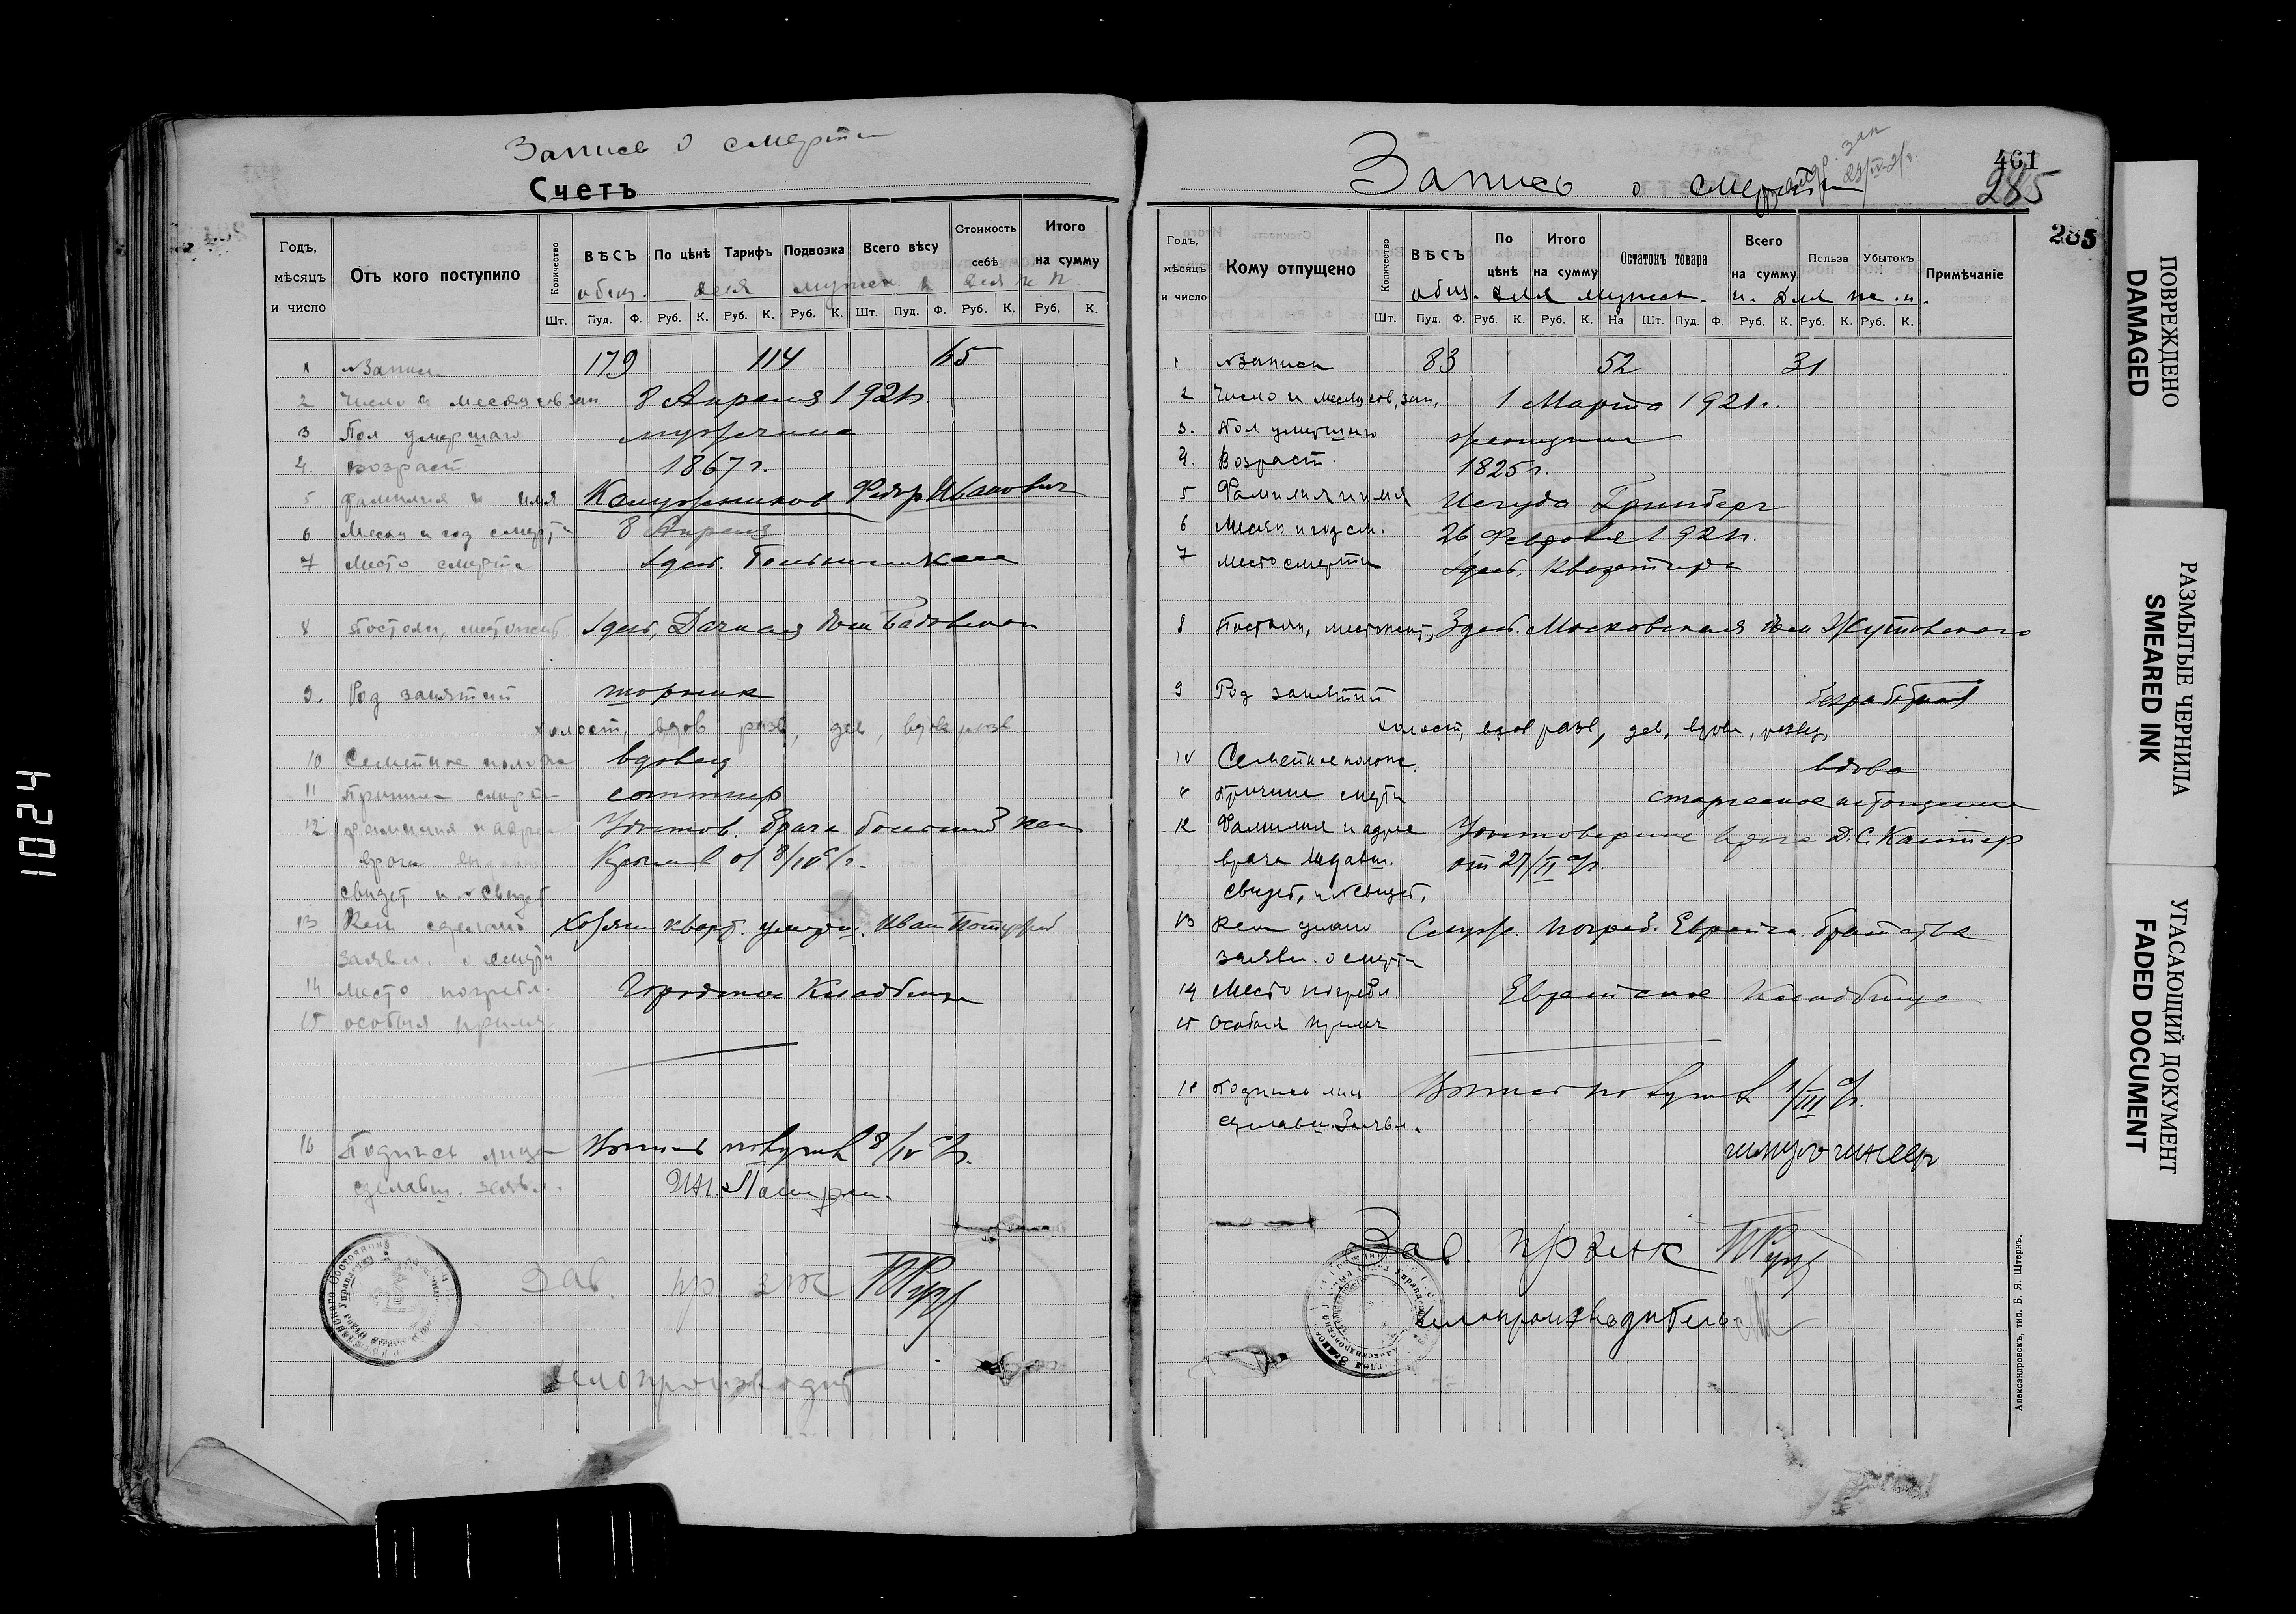 Запись о смерти
Счетъ
Годъ, мѣсяцъ и число
Отъ кого поступило
Количество
ВѢСЪ
По цѣнѣ
Тарифъ
Подвозка
Всего вѣсу
Стоимость себѣ
Итого на сумму
общ. для мужск. для ж п.
Шт. Пуд. Ф. Руб. К. Руб. К. Руб. К. Шт. Пуд. Ф. Руб. К. Руб. К.
1 №Записи 179 114 65
2 Число и месяц сов зап 8 Апреля 1921г.
3 Пол умершаго мужчина
4. возраст 1867 г.
5 фамилия и имя Федор Иванович
6 Месяц и год смерт, 8 Апреля
7 Место смерти здесь.
8 Постоян, местожит здесь, Дачная дом
9. Род занятий
холост, вдов разв, дев, вдова разв
10 Семейное полож вдовец
11 Причина смерти
12 фамилия и адрес Удостов. врача
врача 8/IV с/г.
свидет и № свидет
13 Кем сделано Хозяин кварт. умерш. Иван
заявл. о смерти
14 Место погребл. Городское Кладбище
15 особыя примеч
16 Подпись лица 8/IV с/г.
сделавш. заявл.
Зав. пр зж
делопроизводит
Запись о смерти
401
285
285
Годъ, мѣсяцъ и число
Кому отпущено
Количество
ВѢСЪ
По цѣнѣ
Итого на сумму
Остатокъ товара
Всего на сумму
Польза
Убытокъ
Примѣчаніе
общ. для мужск. и. для ж.п.
Шт. Пуд. Ф. Руб. К. Руб. К. На Шт. Пуд. Ф. Руб. К. Руб. К. Руб. К.
1 №Записи 83 52 31
2 Число и месяц сов, зап, 1 Марта 1921г.
3. Пол умершаго женщина
4. Возраст. 1825г.
5 Фамилия и имя Гринберг
6 Месяц и год см. 26 Февраля 1921г.
7 место смерти здесь. Квартира
8 Постоян, местожит, Здесь. Московская дом
9 Род занятий безработная
холост, вдов разв, дев, вдова, развед,
10 Семейное полож. вдова
11 Причина смерти старческое истощение
12 Фамилия и адрес Удостоверение врача Д.С.
врача выдавш. от 27/II с/г.
свидет, и № свидет,
13 Кем сделано Служ. погреб. Еврейск. братства
заявл. о смерти
14 Место погребл. Еврейское Кладбище
15 Особыя примеч
16 Подпись лица 1/III с/г.
сделавш. Заявл.
Зав. пр З ж
делопроизводитель
Александровскъ, тип. Б. Я. Штернъ.
ПОВРЕЖДЕНО
DAMAGED
РАЗМЫТЫЕ ЧЕРНИЛА
SMEARED INK
УГАСАЮЩИЙ ДОКУМЕНТ
FADED DOCUMENT
1024